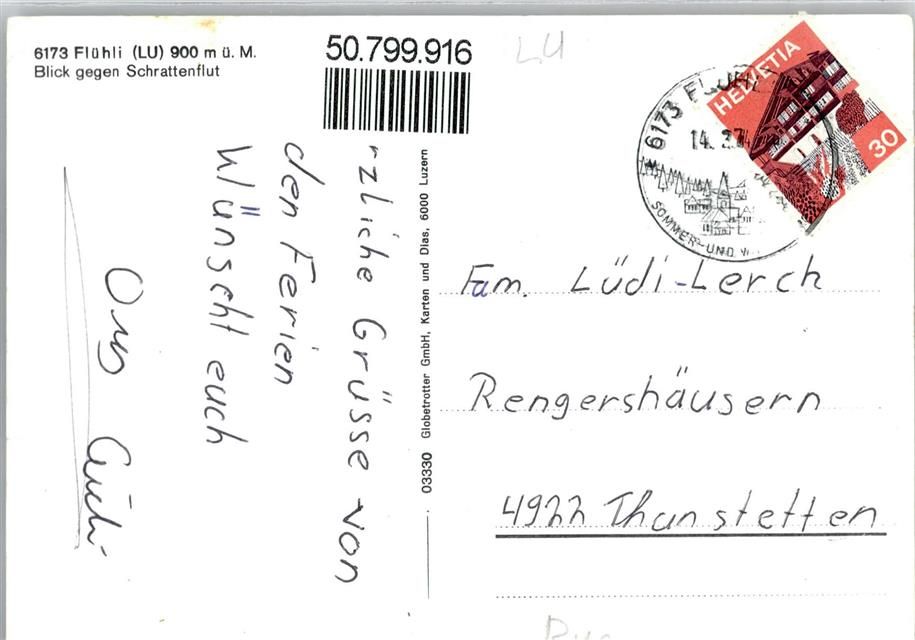 6173 Flühli (LU) 900 m ü. M.
Blick gegen Schrattenflut
50.799.916
LU
HELVETIA
30
6173 FLÜHLI
14. 2.7
SOMMER- UND
rzliche Grüsse von
den Ferien
Wünscht euch
03330 Globetrotter GmbH, Karten und Dias, 6000 Luzern
Fam. Lüdi-Lerch
Rengershäusern
4922 Thunstetten